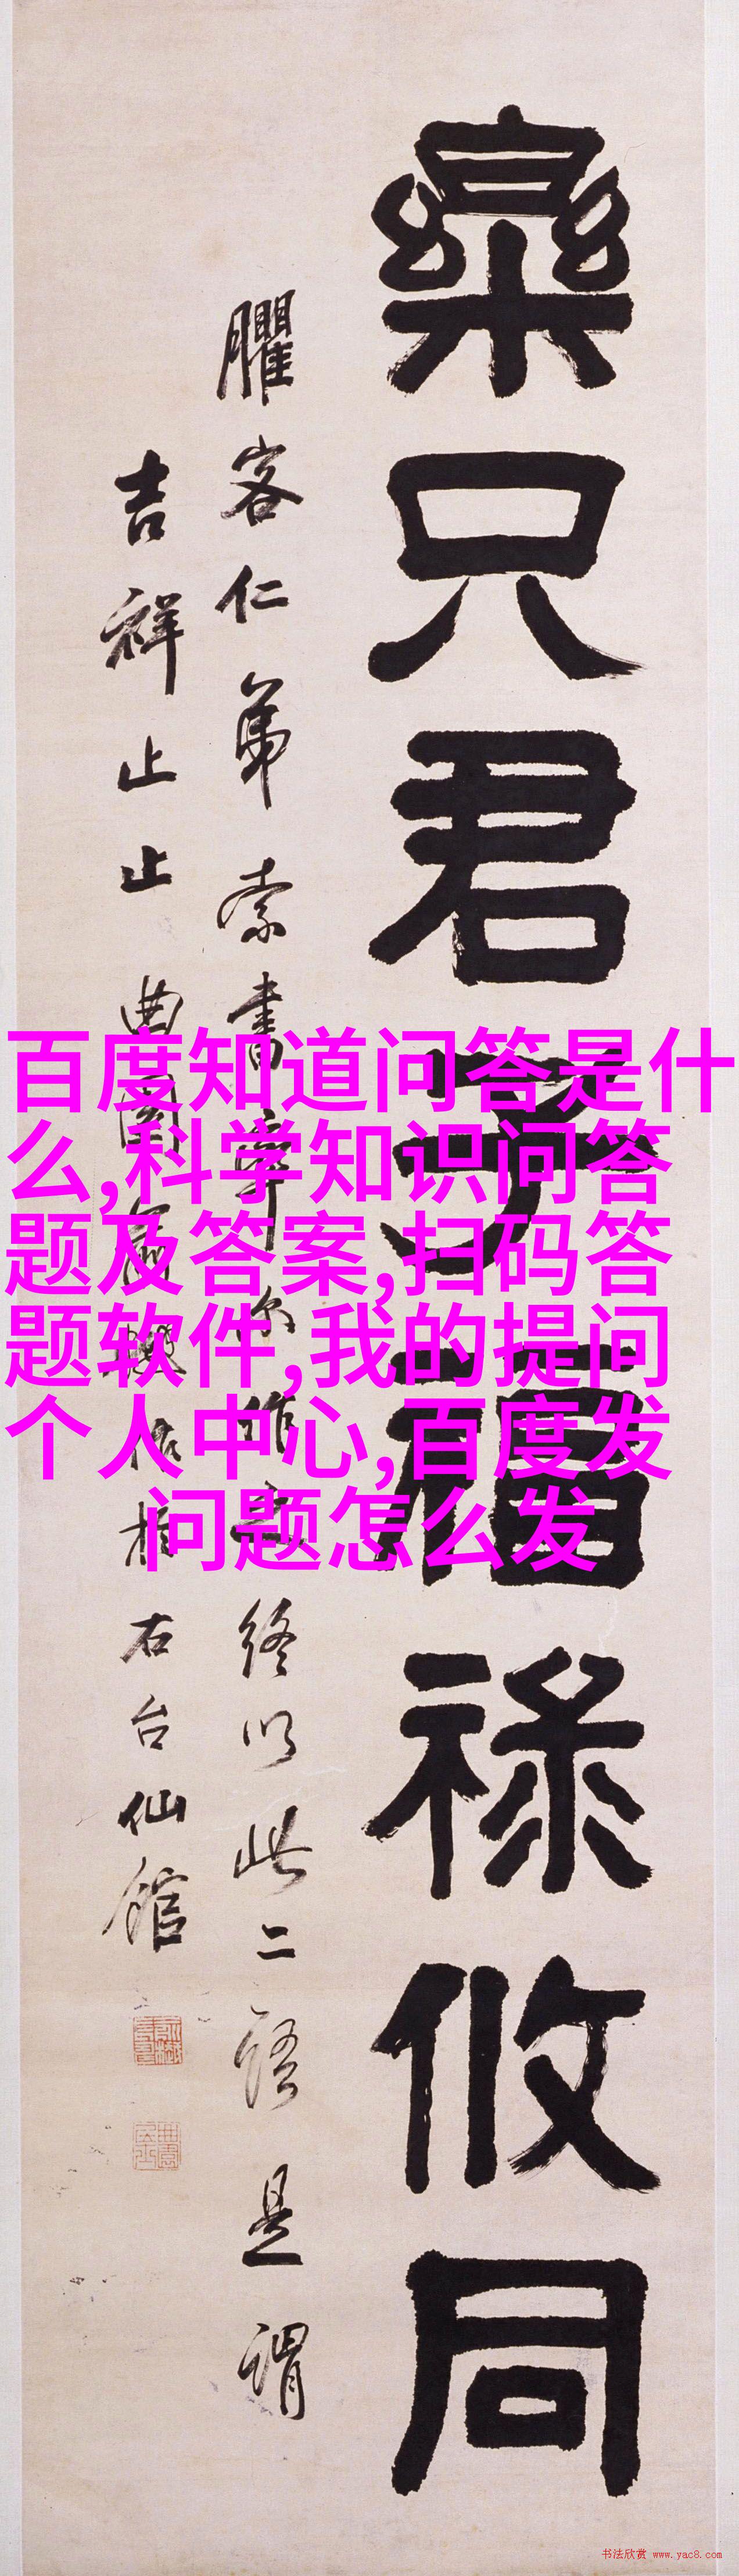 樂只君子福祿攸同
臞客仁弟索書
終以此二語是謂
吉祥止止曲園
右台仙館
百度知道问答是什
么,科学知识问答
题及答案,扫码答
题软件,我的提问
个人中心,百度发
问题怎么发
书法欣赏 www.yac8.com